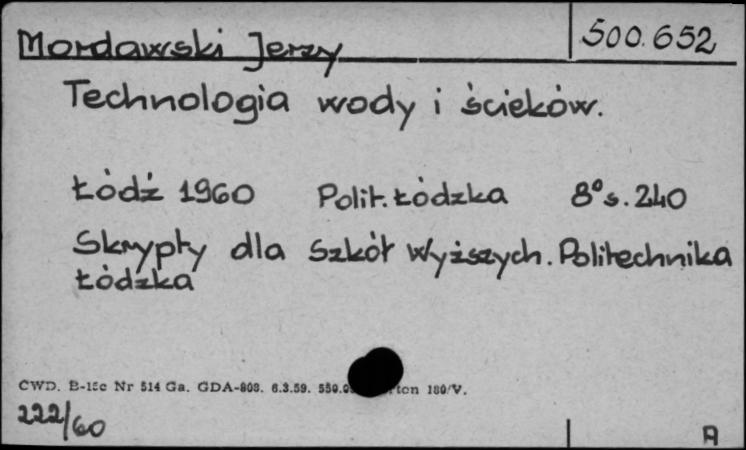 Mordawski Jerzy 500.652
Technologia wody i ścieków.
Łódź 1960 Polit. Łódzka 8° s. 240
Skrypty dla Szkół Wyższych. Politechnika
Łódzka
CWD. B-15c Nr 514 Ga. GDA-808. 6.3.59. 180/V.
222/60
A